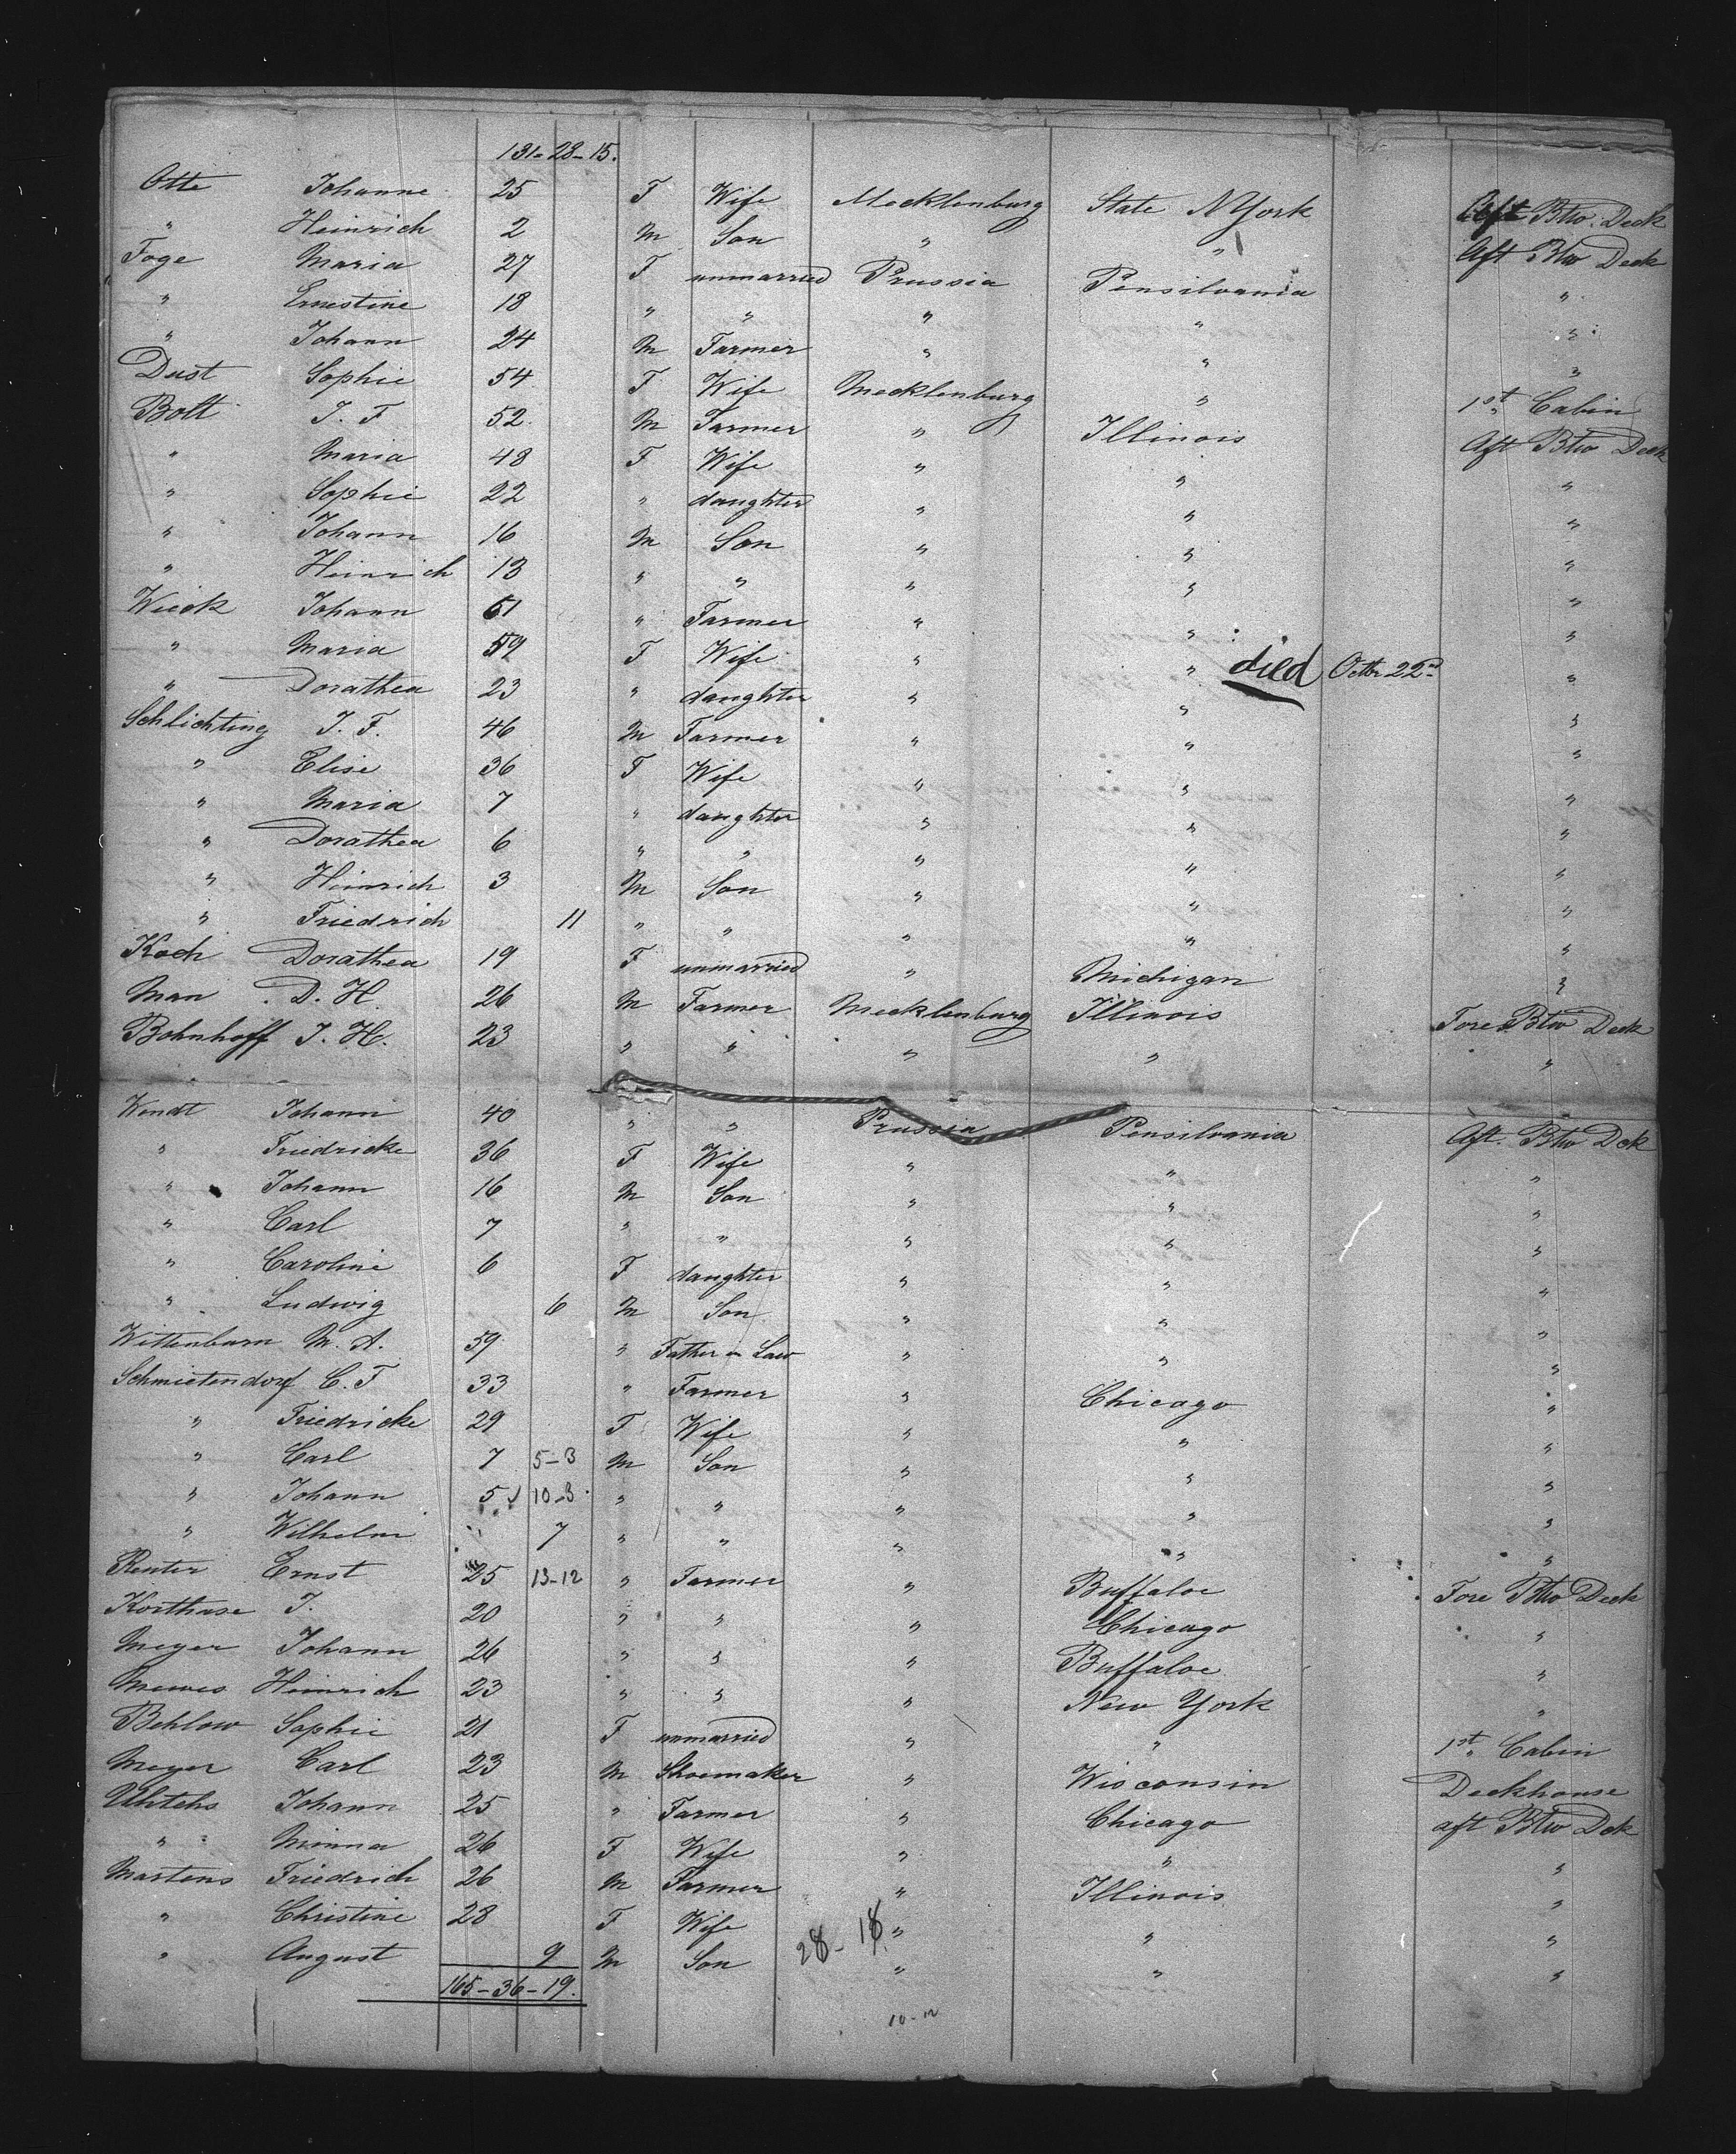 131-28-15.
Otte Johanne 25 F Wife Mecklenburg State NYork Aft Btw. Deck
" Heinrich 2 M Son " " Aft Btw Deck
Foge Maria 27 F unmarried Prussia Pensilvania "
" Ernestine 18 " " " " "
" Johann 24 M Farmer " " "
Dust Sophie 54 F Wife Mecklenburg " 1st Cabin
Bolt J. F 52 M Farmer " Illinois Aft Btw Deck
" Maria 48 F Wife " " "
" Sophie 22 " daughter " " "
" Johann 16 M Son " " "
" Heinrich 13 " " " " "
Wieck Johann 61 " Farmer " " "
" Maria 59 F Wife " " died Octbr 22nd "
" Dorathea 23 " daughter " " "
Schlichting J. F. 46 M Farmer " " "
" Elise 36 F Wife " " "
" Maria 7 " daughter " " "
" Dorathea 6 " " " " "
" Heinrich 3 M Son " " "
" Friedrich 11 " " " " "
Koch Dorathea 19 F unmarried " Michigan "
Man D. H. 26 M Farmer Mecklenburg Illinois Fore Btw Deck
Bohnhoff J. H. 23 " " " " "
Wendt Johann 40 " " Prussia Pensilvania Aft. Btw Dek
" Friedricke 36 F Wife " " "
" Johann 16 M Son " " "
" Carl 7 " " " " "
" Caroline 6 F daughter " " "
" Ludwig 6 M Son " " "
Wittenburn M. A. 59 " Father in Law " " "
Schmietendorf C. F 33 " Farmer " Chicago "
" Friedricke 29 F Wife " " "
" Carl 7 5-3 M Son " " "
" Johann 5 10-3 " " " " "
" Wilhelm 7 " " " " "
Reuter Ernst 25 13-12 " Farmer " Buffaloe Fore Btw Deck
Korthase J. 20 " " " Chicago "
Meyer Johann 26 " " " Buffaloe "
Mewes Heinrich 23 " " " New York "
Behlow Sophie 21 F unmarried " " 1st Cabin
Meyer Carl 23 M Shoemaker " Wisconsin Deckhouse
Uhtehs Johann 25 " Farmer " Chicago aft Btw Dek
" Minna 26 F Wife " " "
Martens Friedrich 26 M Farmer " Illinois "
" Christine 28 F Wife " " "
" August 9 M Son 28-18 " " "
165-36-19.
10-12